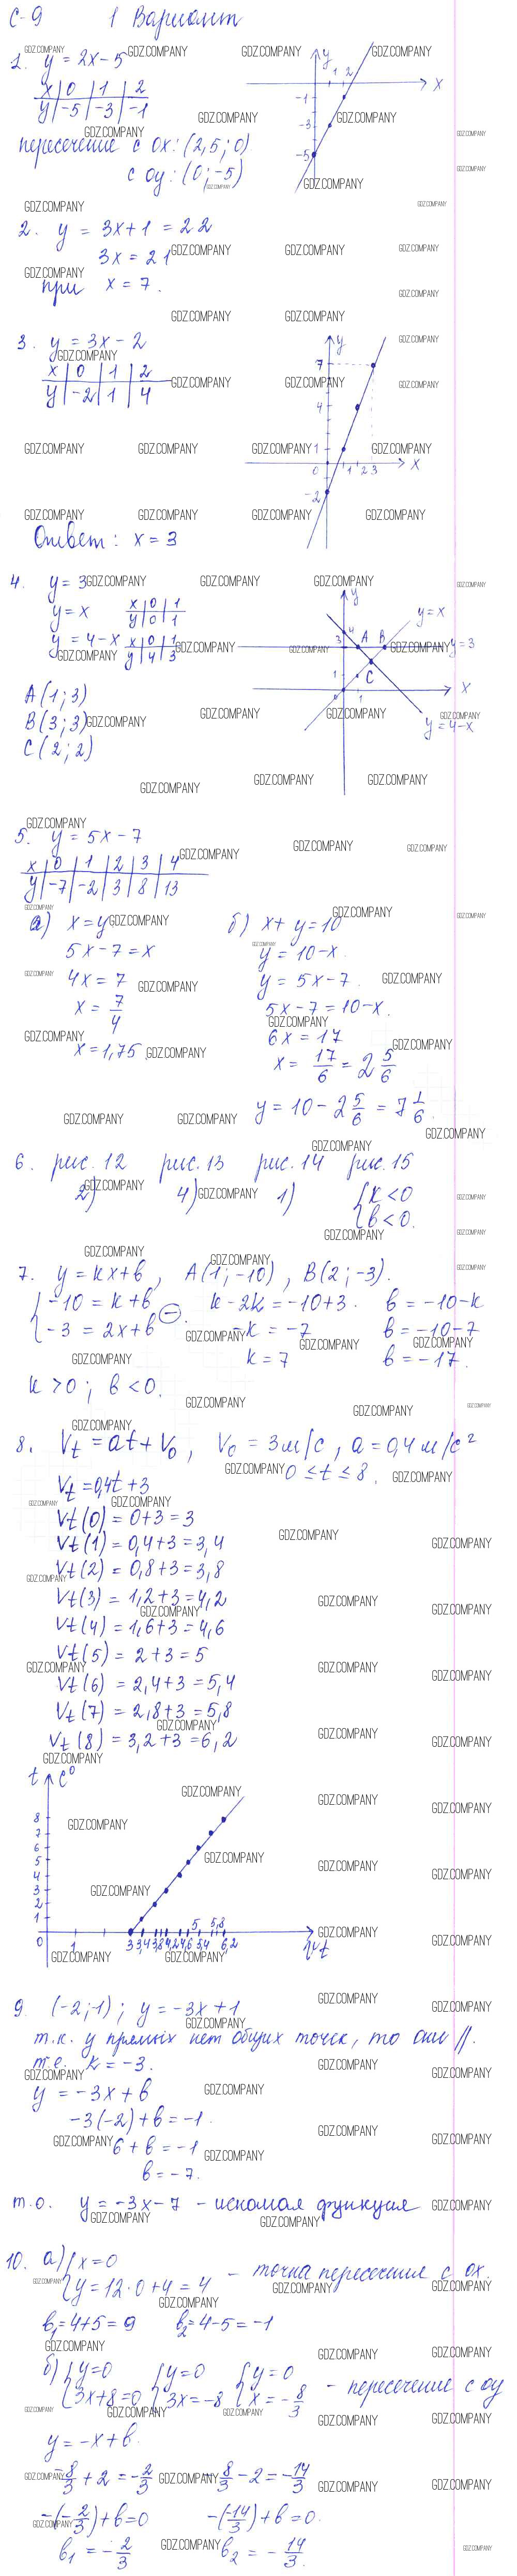 С-9 1 Вариант
1. y = 2x - 5
x | 0 | 1 | 2
y | -5 | -3 | -1
пересечение с Ox: (2,5; 0)
с Oy: (0; -5)
y
1 2
x
-1
-3
-5
2. y = 3x + 1 = 22
3x = 21
при x = 7.
3. y = 3x - 2
x | 0 | 1 | 2
y | -2 | 1 | 4
y
7
4
1
0 1 2 3 x
-2
Ответ: x = 3
4. y = 3
y = x
x | 0 | 1
y | 0 | 1
y = 4 - x
x | 0 | 1
y | 4 | 3
A (1; 3)
B (3; 3)
C (2; 2)
y
y = x
4
3 A B y = 3
C
1
0 1 x
y = 4 - x
5. y = 5x - 7
x | 0 | 1 | 2 | 3 | 4
y | -7 | -2 | 3 | 8 | 13
а) x = y
5x - 7 = x
4x = 7
x = 7/4
x = 1,75
б) x + y = 10
y = 10 - x
y = 5x - 7.
5x - 7 = 10 - x.
6x = 17
x = 17/6 = 2 5/6
y = 10 - 2 5/6 = 7 1/6.
6. рис. 12 рис. 13 рис. 14 рис. 15
2) 4) 1) { k < 0
{ b < 0.
7. y = kx + b, A(1; -10), B(2; -3).
{ -10 = k + b
{ -3 = 2x + b
(-)
k - 2k = -10 + 3.
-k = -7
k = 7
b = -10 - k
b = -10 - 7
b = -17.
k > 0; b < 0.
8. Vt = at + V0, V0 = 3 м/с, a = 0,4 м/с²
0 ≤ t ≤ 8.
Vt = 0,4t + 3
Vt(0) = 0 + 3 = 3
Vt(1) = 0,4 + 3 = 3,4
Vt(2) = 0,8 + 3 = 3,8
Vt(3) = 1,2 + 3 = 4,2
Vt(4) = 1,6 + 3 = 4,6
Vt(5) = 2 + 3 = 5
Vt(6) = 2,4 + 3 = 5,4
Vt(7) = 2,8 + 3 = 5,8
Vt(8) = 3,2 + 3 = 6,2
t C⁰
8
7
6
5
4
3
2
1
0 1 3 3,4 3,8 4,2 4,6 5 5,4 5,8 6,2
9. (-2; -1); y = -3x + 1
т.к. у прямых нет общих точек, то они //.
т.е. k = -3.
y = -3x + b
-3(-2) + b = -1.
6 + b = -1
b = -7.
т.о. y = -3x - 7 - искомая функция
10. а) { x = 0
{ y = 12·0 + 4 = 4 - точка пересечения с ox.
b1 = 4 + 5 = 9 b2 = 4 - 5 = -1
б) { y = 0
{ 3x + 8 = 0
{ y = 0
{ 3x = -8
{ y = 0
{ x = -8/3 - пересечение с oy
y = -x + b.
-8/3 + 2 = -2/3 -8/3 - 2 = -14/3
-(-2/3) + b = 0 -(-14/3) + b = 0.
b1 = -2/3 b2 = -14/3.
GDZ.COMPANY